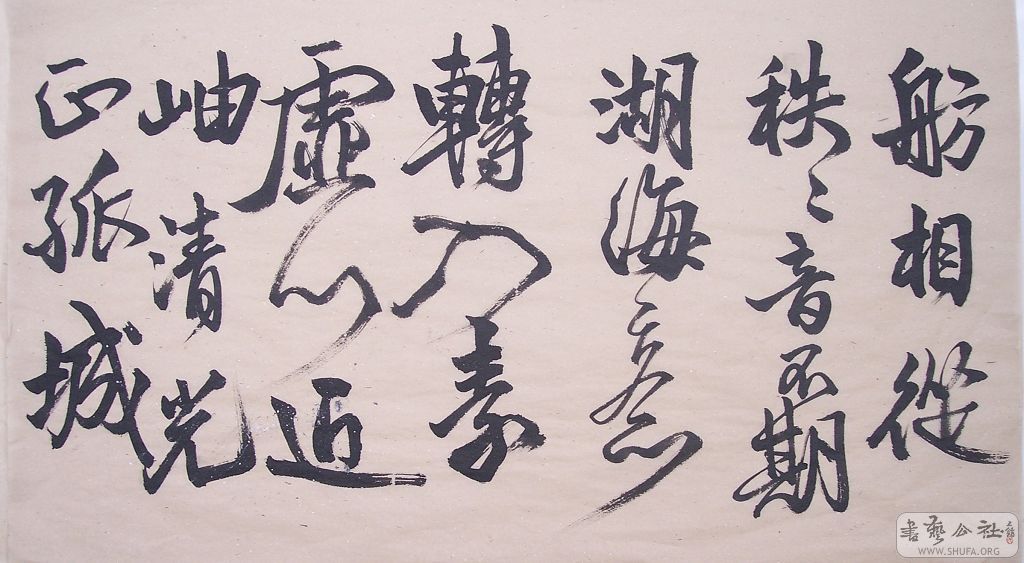 舫相從
秩々音不期
湖海意
轉入素
虛心近
岫清光
正孤城
書藝公社
WWW.SHUFA.ORG